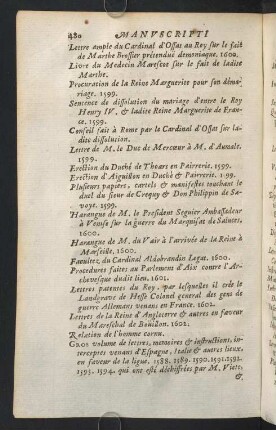 480 MANVSCRIPTI
Lettre ample du Cardinal d'Ossat au Roy sur le fait
de Marthe Brossier prétenduë demoniaque. 1600.
Livre du Medecin Marescot sur le fait de ladite
Marthe.
Procuration de la Reine Marguerite pour son déma-
riage. 1599.
Sentence de dissolution du mariage d'entre le Roy
Henry IV. & ladite Reine Marguerite de Fran-
ce. 1599.
Conseil fait à Rome par le Cardinal d'Ossat sur la-
dite dissolution.
Lettre de M. le Duc de Mercœur à M. d'Aumale.
1599.
Erection du Duché de Thoars en Pairrerie. 1599.
Erection d'Aiguillon en Duché & Pairrerie. 1599.
Plusieurs papiers, cartels & manifestes touchant le
duel du sieur de Crequy & Don Philippin de Sa-
voye. 1599.
Harangue de M. le President Seguier Ambassadeur
à Venise sur la guerre du Marquisat de Saluces.
1600.
Harangue de M. du Vair à l'arrivée de la Reine à
Marseille, 1600.
Facultez du Cardinal Aldobrandin Legat. 1600.
Procedures faites au Parlement d'Aix contre l'Ar-
chevesque dudit lieu. 1601.
Lettres patentes du Roy, par lesquelles il crée le
Landgrave de Hesse Colonel general des gens de
guerre Allemans venans en France. 1602.
Lettres de la Reine d'Angleterre & autres en faveur
du Mareschal de Boüillon. 1602.
Relation de l'homme cornu.
Gros volume de lettres, memoires & instructions, in-
terceptes venans d'Espagne, Italie & autres lieux,
en faveur de la ligue. 1588. 1589. 1590. 1591. 1592.
1593. 1594. qui ont esté déchiffrées par M. Viete,
&